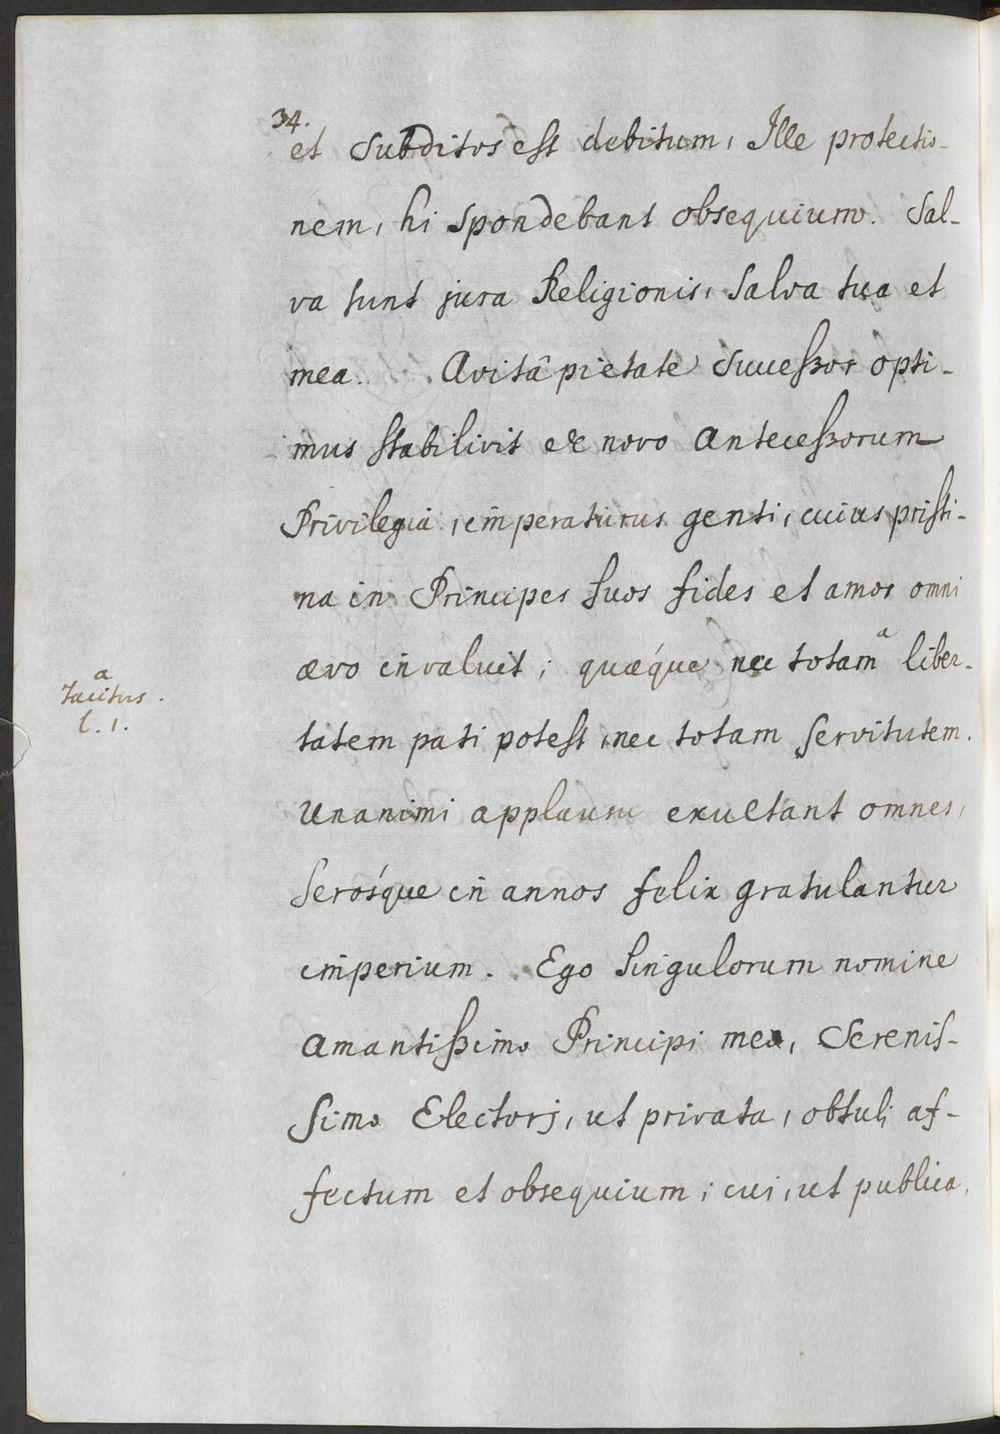 34.
et Subditos est debitum, Ille protectio-
nem, hi spondebant obsequium. Sal-
va sunt jura Religionis, salva tua et
mea. Avitâ pietate Successor opti-
mus stabilivit de novo Antecessorum
Privilegia, imperaturus genti, cuius pristi-
na in Principes suos fides et amor omni
ævo invaluit; quæque nec totam a liber-
tatem pati potest, nec totam servitutem.
Unanimi applausu exultant omnes,
serosque in annos felix gratulantur
imperium. Ego singulorum nomine
Amantissimo Principi meo, Serenis-
simo Electori, ut privata, obtuli af-
fectum et obsequium; cui, ut publica,
a
Tacitus.
l. 1.